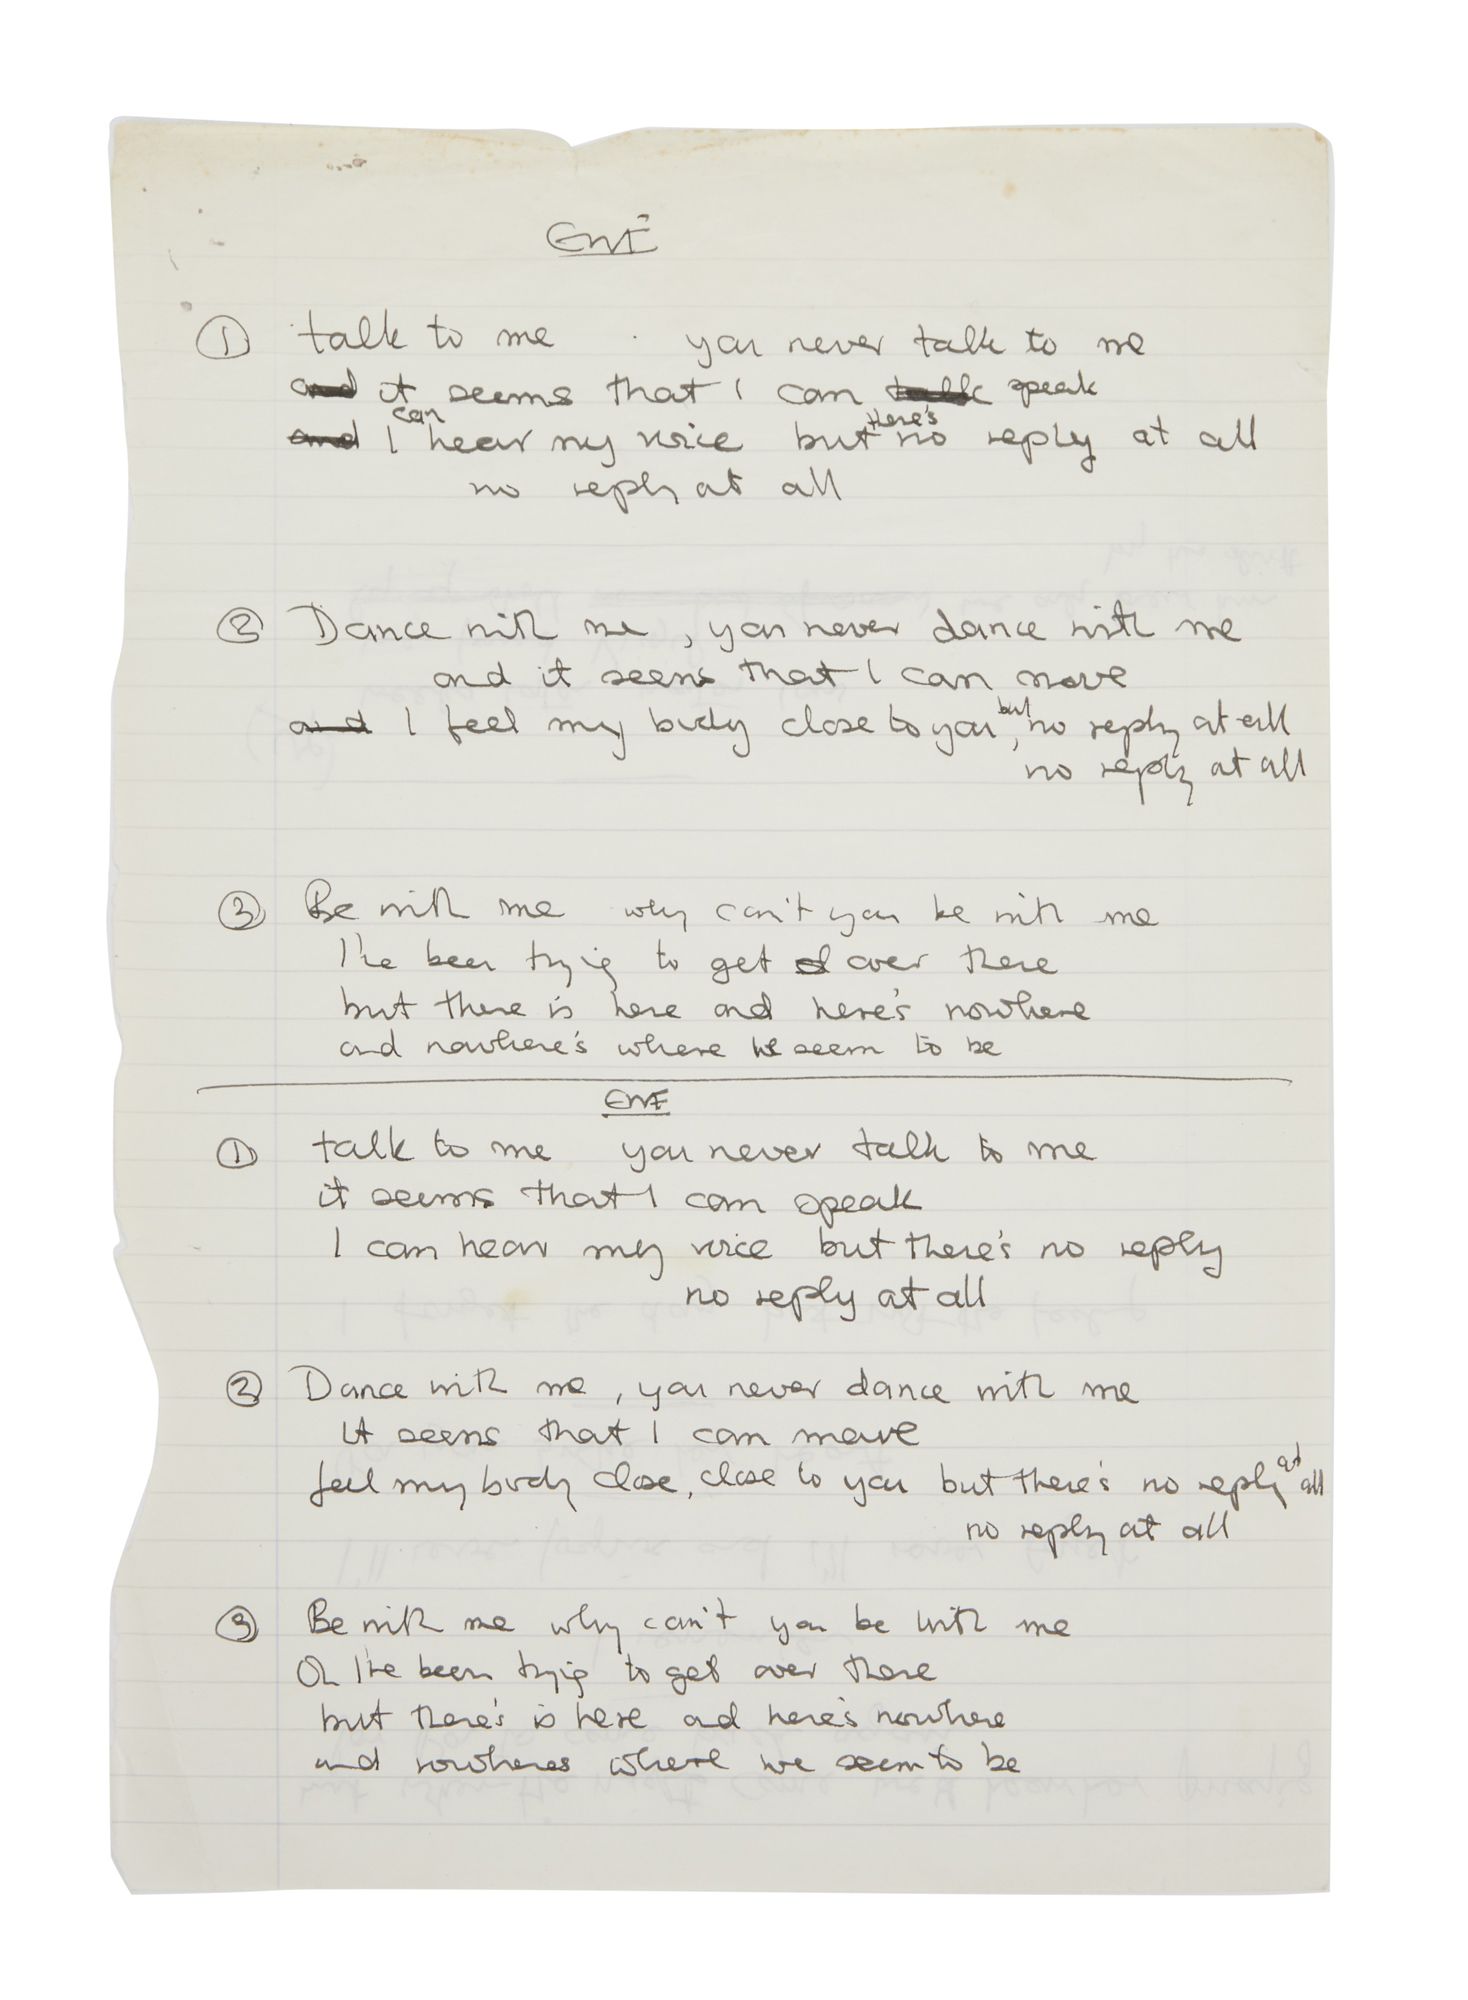 EWF
① talk to me you never talk to me
and it seems that I can talk speak
and I can hear my voice but there's no reply at all
no reply at all
② Dance with me, you never dance with me
and it seems that I can move
and I feel my body close to you, but no reply at all
no reply at all
③ Be with me why can't you be with me
I've been trying to get over there
but there is here and here's nowhere
and nowhere's where we seem to be
EWF
① talk to me you never talk to me
it seems that I can speak
I can hear my voice but there's no reply
no reply at all
② Dance with me, you never dance with me
it seems that I can move
feel my body close, close to you but there's no reply at all
no reply at all
③ Be with me why can't you be with me
Oh I've been trying to get over there
but there's is here and here's nowhere
and nowheres where we seem to be